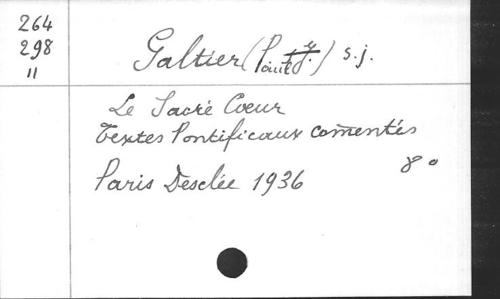 264
298
11
Galtier (Paul) s.j.
Le Sacré Coeur
Textes Pontificaux comentés
8°
Paris Desclée 1936